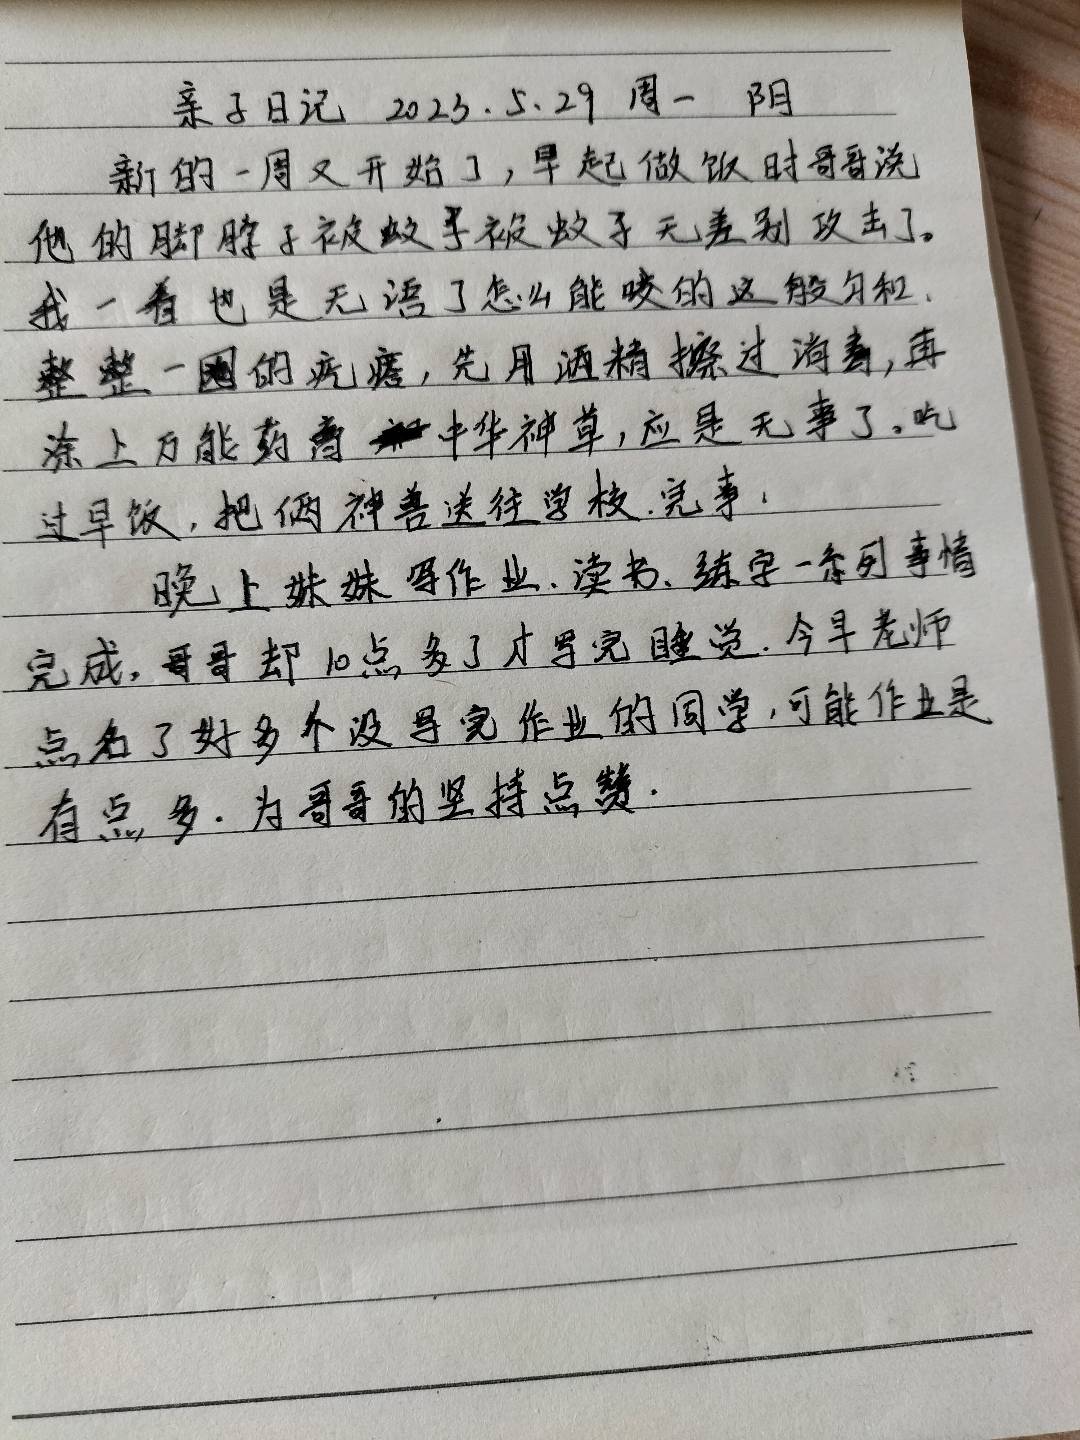 亲子日记 2023.5.29 周一 阴
新的一周又开始了,早起做饭时哥哥说
他的脚脖子被蚊子被蚊子无差别攻击了。
我一看也是无语了怎么能咬的这般匀和.
整整一圈的疙瘩,先用酒精擦过消毒,再
涂上万能药膏 中华神草,应是无事了。吃
过早饭,把俩神兽送往学校.完事.
晚上妹妹写作业.读书、练字一系列事情
完成。哥哥却10点多了才写完睡觉.今早老师
点名了好多个没写完作业的同学,可能作业是
有点多.为哥哥的坚持点赞.